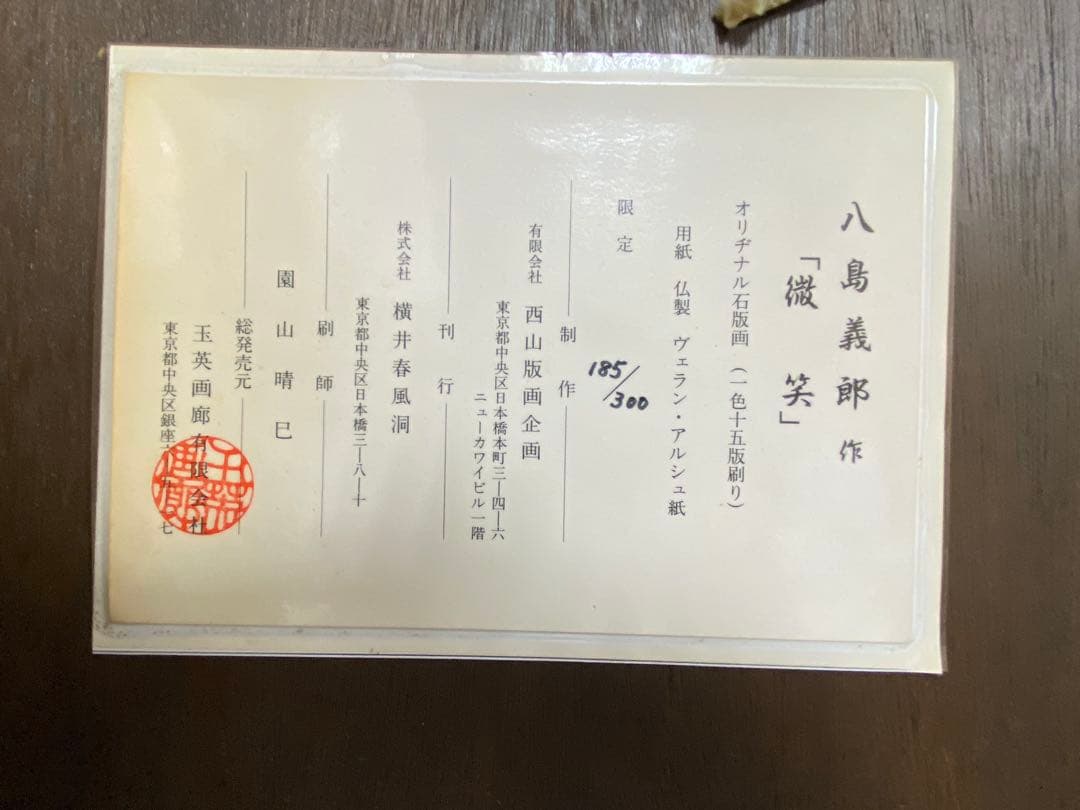 八島義郎 作
「微笑」
オリヂナル石版画(一色十五版刷り)
用紙 仏製 ヴェラン・アルシュ紙
限定 185/300
制作
有限会社 西山版画企画
東京都中央区日本橋本町三―四―六
ニューカワイビル一階
刊行
株式会社 横井春風洞
東京都中央区日本橋三―八―十
刷師
園山晴巳
総発売元
玉英画廊有限会社
東京都中央区銀座